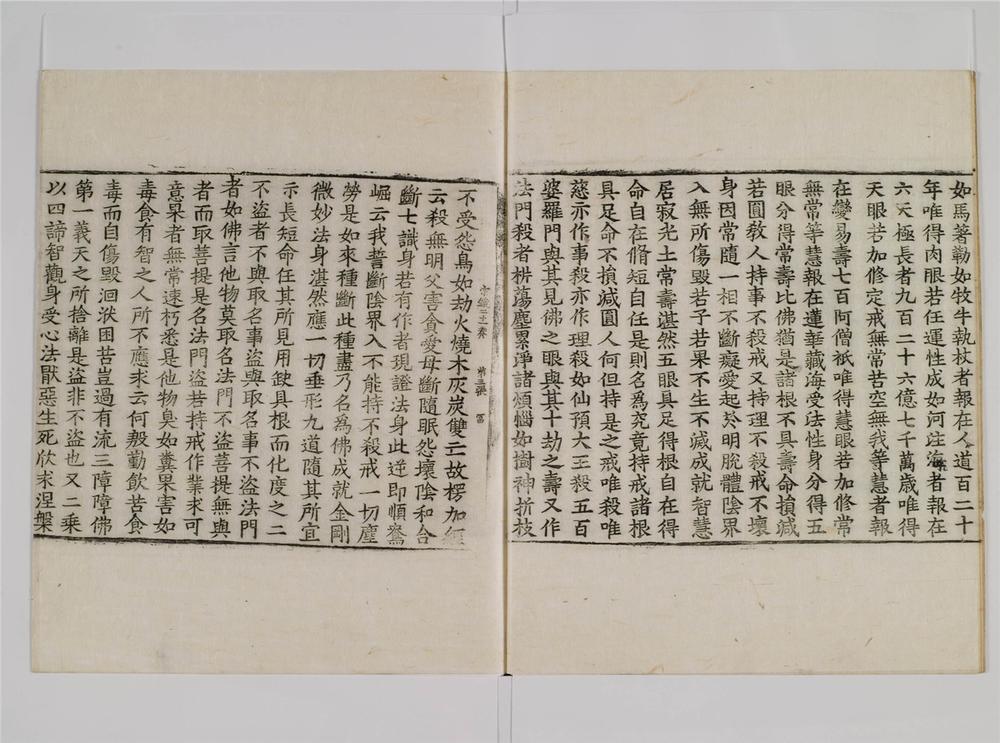 如馬著勒如牧牛執杖者報在人道百二十
年唯得肉眼若任運性成如河注海者報在
六天極長者九百二十六億七千萬歲唯得
天眼若加修定戒無常苦空無我等慧者報
在變易壽七百阿僧祇唯得慧眼若加修常
無常等慧報在蓮華藏海受法性身分得五
眼分得常壽比佛猶是諸根不具壽命損減
若圓教人持事不殺戒又持理不殺戒不壞
身因常隨一相不斷癡愛起於明脫體陰界
入無所傷毀若子若果不生不滅成就智慧
居寂光土常壽湛然五眼具足得根自在得
命自在脩短自任是則名爲究竟持戒諸根
具足命不損減圓人何但持是之戒唯殺唯
慈亦作事殺亦作理殺如仙預大王殺五百
婆羅門與其見佛之眼與其十劫之壽又作
法門殺者析蕩塵累淨諸煩惱如樹神折枝
不受怨鳥如劫火燒木灰炭雙亡故楞加經
云殺無明父害貪愛母斷隨眠怨壞陰和合
斷七識身若有作者現證法身此逆即順鴦
崛云我誓斷陰界入不能持不殺戒一切塵
勞是如來種斷此種盡乃名爲佛成就金剛
微妙法身湛然應一切垂形九道隨其所宜
示長短命任其所見用缺具根而化度之二
不盜者不與取名事盜與取名事不盜法門
者如佛言他物莫取名法門不盜菩提無與
者而取菩提是名法門盜若持戒作業求可
意果者無常速朽悉是他物臭如糞果害如
毒食有智之人所不應求云何殷勤飲苦食
毒而自傷毀洄洑困苦豈過有流三障障佛
第一義天之所捨離是盜非不盜也又二乘
以四諦智觀身受心法厭惡生死欣求涅槃